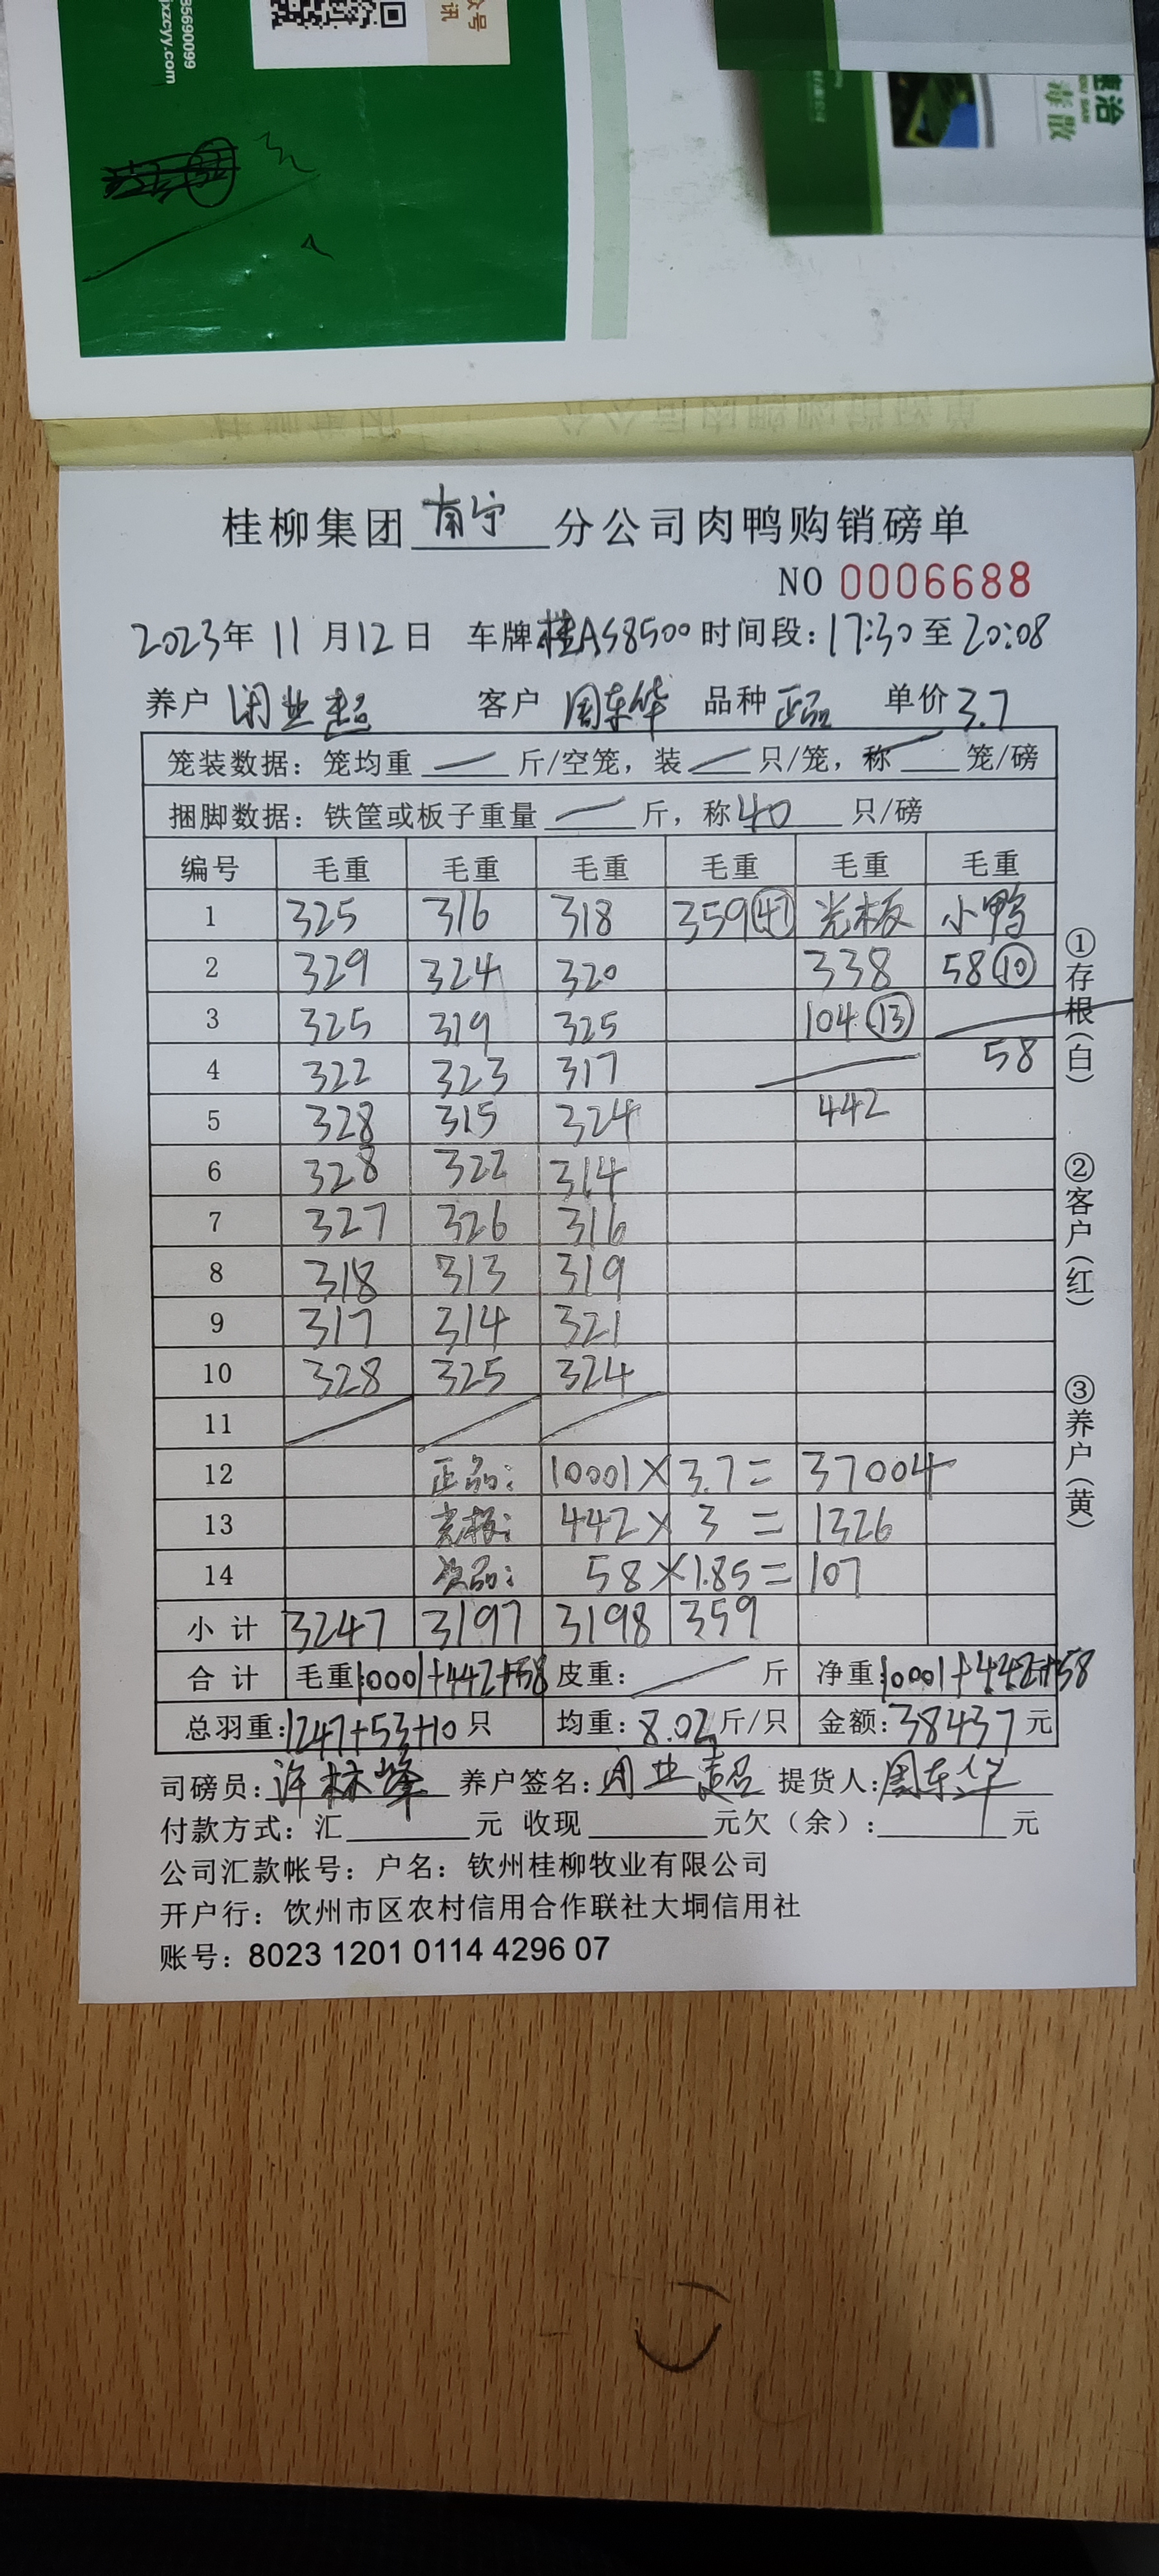 85690099
xzcyy.com
众号
讯
速治
毒散
桂柳集团 南宁 分公司肉鸭购销磅单
NO 0006688
2023年 11 月 12 日 车牌 桂AS8500 时间段: 17:30 至 20:08
养户 闭业超 客户 周东华 品种 正品 单价 3.7
笼装数据: 笼均重 — 斤/空笼, 装 — 只/笼, 称 — 笼/磅
捆脚数据: 铁筐或板子重量 — 斤, 称 40 只/磅
编号 毛重 毛重 毛重 毛重 毛重 毛重
1 325 316 318 359 (41) 光板 小鸭
2 329 324 320 338 58 (10)
3 325 319 325 104 (13)
4 322 323 317 58
5 328 315 324 442
6 328 322 314
7 327 326 316
8 318 313 319
9 317 314 321
10 328 325 324
11
12 正品: 10001 × 3.7 = 37004
13 光板: 442 × 3 = 1326
14 次品: 58 × 1.85 = 107
小计 3247 3197 3198 359
合计 毛重: 10001+442+58 皮重: — 斤 净重: 10001+442+58
总羽重: 1247+53+10 只 均重: 8.02 斤/只 金额: 38437 元
司磅员: 许林峰 养户签名: 闭业超 提货人: 周东华
付款方式: 汇 元 收现 元欠(余): 元
公司汇款帐号: 户名: 钦州桂柳牧业有限公司
开户行: 饮州市区农村信用合作联社大垌信用社
账号: 8023 1201 0114 4296 07
①存根(白)
②客户(红)
③养户(黄)